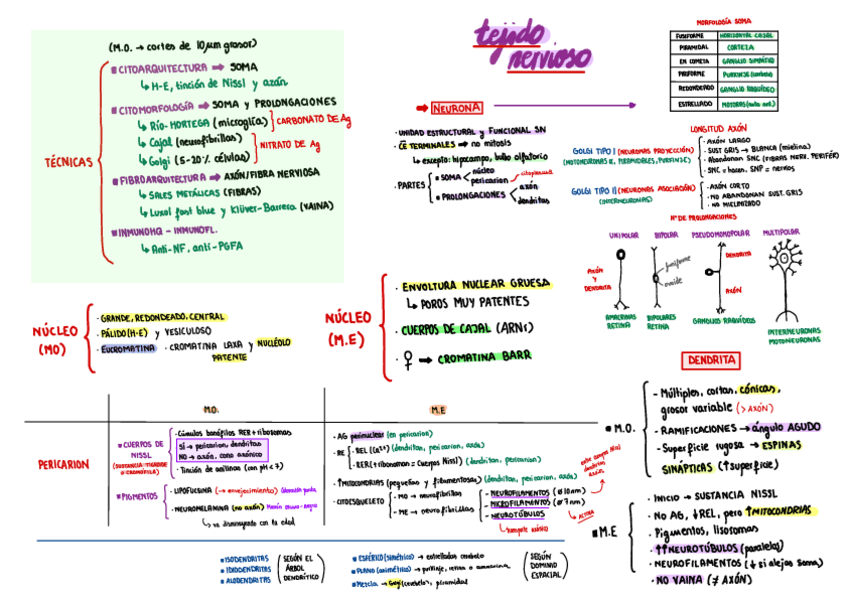 tejido
nervioso
(M.O. → cortes de 10μm grosor)
TÉCNICAS
CITOARQUITECTURA → SOMA
↳ H-E, tinción de Nissl y azán
CITOMORFOLOGÍA → SOMA y PROLONGACIONES
↳ Río-HORTEGA (microglía)
CARBONATO DE Ag
↳ Cajal (neurofibrillas)
↳ Golgi (5-20% células)
NITRATO DE Ag
FIBROARQUITECTURA → AXÓN/FIBRA NERVIOSA
↳ SALES METÁLICAS (FIBRAS)
↳ Luxol fast blue y Klüver-Barrera (VAINA)
INMUNOHQ - INMUNOFL.
↳ Anti-NF, anti-PGFA
→ NEURONA
· UNIDAD ESTRUCTURAL y FUNCIONAL SN
· CE TERMINALES → no mitosis
↳ excepto: hipocampo, bulbo olfatorio
· PARTES
SOMA
núcleo
pericarion
citoplasma
PROLONGACIONES
axón
dendritas
MORFOLOGÍA SOMA
FUSIFORME HORIZONTAL CAJAL
PIRAMIDAL CORTEZA
EN COMETA GANGLIO SIMPÁTICO
PIRIFORME PURKINJE (cerebelo)
REDONDEADO GANGLIO RAQUÍDEO
ESTRELLADO MOTORAS
LONGITUD AXÓN
GOLGI TIPO I (NEURONAS PROYECCIÓN)
(MOTONEURONAS α, PIRAMIDALES, PURKINJE)
- AXÓN LARGO
- SUST GRIS → BLANCA (mielina)
- Abandonan SNC (FIBRAS NERV. PERIFÉR)
- SNC = haces, SNP = nervios
GOLGI TIPO II (NEURONAS ASOCIACIÓN)
(INTERNEURONAS)
- AXÓN CORTO
- NO ABANDONAN SUST. GRIS
- NO MIELINIZADO
Nº DE PROLONGACIONES
UNIPOLAR BIPOLAR PSEUDOMONOPOLAR MULTIPOLAR
AXÓN
Y
DENDRITA
fusiforme
ovoide
DENDRITA
AXÓN
AMACRINAS
RETINA
BIPOLARES
RETINA
GANGLIOS RAQUÍDEOS
INTERNEURONAS
MOTONEURONAS
NÚCLEO
(MO)
· GRANDE, REDONDEADO, CENTRAL
· PÁLIDO (H-E) y VESICULOSO
· EUCROMATINA · CROMATINA LAXA y NUCLÉOLO
PATENTE
NÚCLEO
(M.E)
· ENVOLTURA NUCLEAR GRUESA
↳ POROS MUY PATENTES
· CUERPOS DE CAJAL (ARNs)
· ♀ → CROMATINA BARR
DENDRITA
M.O.
- Múltiples, cortas, cónicas,
grosor variable (> AXÓN)
- RAMIFICACIONES → ángulo AGUDO
- Superficie rugosa → ESPINAS
SINÁPTICAS (↑superficie)
M.E
- Inicio → SUSTANCIA NISSL
- No AG, ↓REL, pero ↑MITOCONDRIAS
- Pigmentos, lisosomas
- ↑↑NEUROTÚBULOS (paralelos)
- NEUROFILAMENTOS (↓ si alejas soma)
- NO VAINA (≠ AXÓN)
M.O. M.E
PERICARION
CUERPOS DE
NISSL
(SUSTANCIA TIGROIDE
O CROMÓFILA)
- Cúmulos basófilos RER + ribosomas
SÍ → pericarion, dendritas
NO → axón, cono axónico
- Tinción de anilinas (con pH < 7)
PIGMENTOS
- LIPOFUSCINA (→ envejecimiento)
- NEUROMELANINA (no axón)
↳ va disminuyendo con la edad
· AG perinuclear (en pericarion)
· RE
- REL (Ca²⁺) (dendritas, pericarion, axón)
- RER (+ribosomas = Cuerpos Nissl) (dendritas, pericarion)
· ↑MITOCONDRIAS (pequeñas y filamentosas) (dendritas, pericarion, axón)
· CITOESQUELETO
- MO → neurofibrillas
- ME → neurofibrillas
- NEUROFILAMENTOS (ø 10nm)
- MICROFILAMENTOS (ø 7nm)
- NEUROTÚBULOS
↳ transporte axónico
→ ACTINA
entre cuerpos Nissl
dendritas
axón
ISODENDRITAS
IDIODENDRITAS
ALODENDRITAS
SEGÚN EL
ÁRBOL
DENDRÍTICO
ESFÉRICO (simétrico) → estrelladas cerebelo
PLANO (asimétrico) → purkinje, retina o amacrina
MEZCLA → Golgi (cerebelo), piramidal
SEGÚN
DOMINIO
ESPACIAL